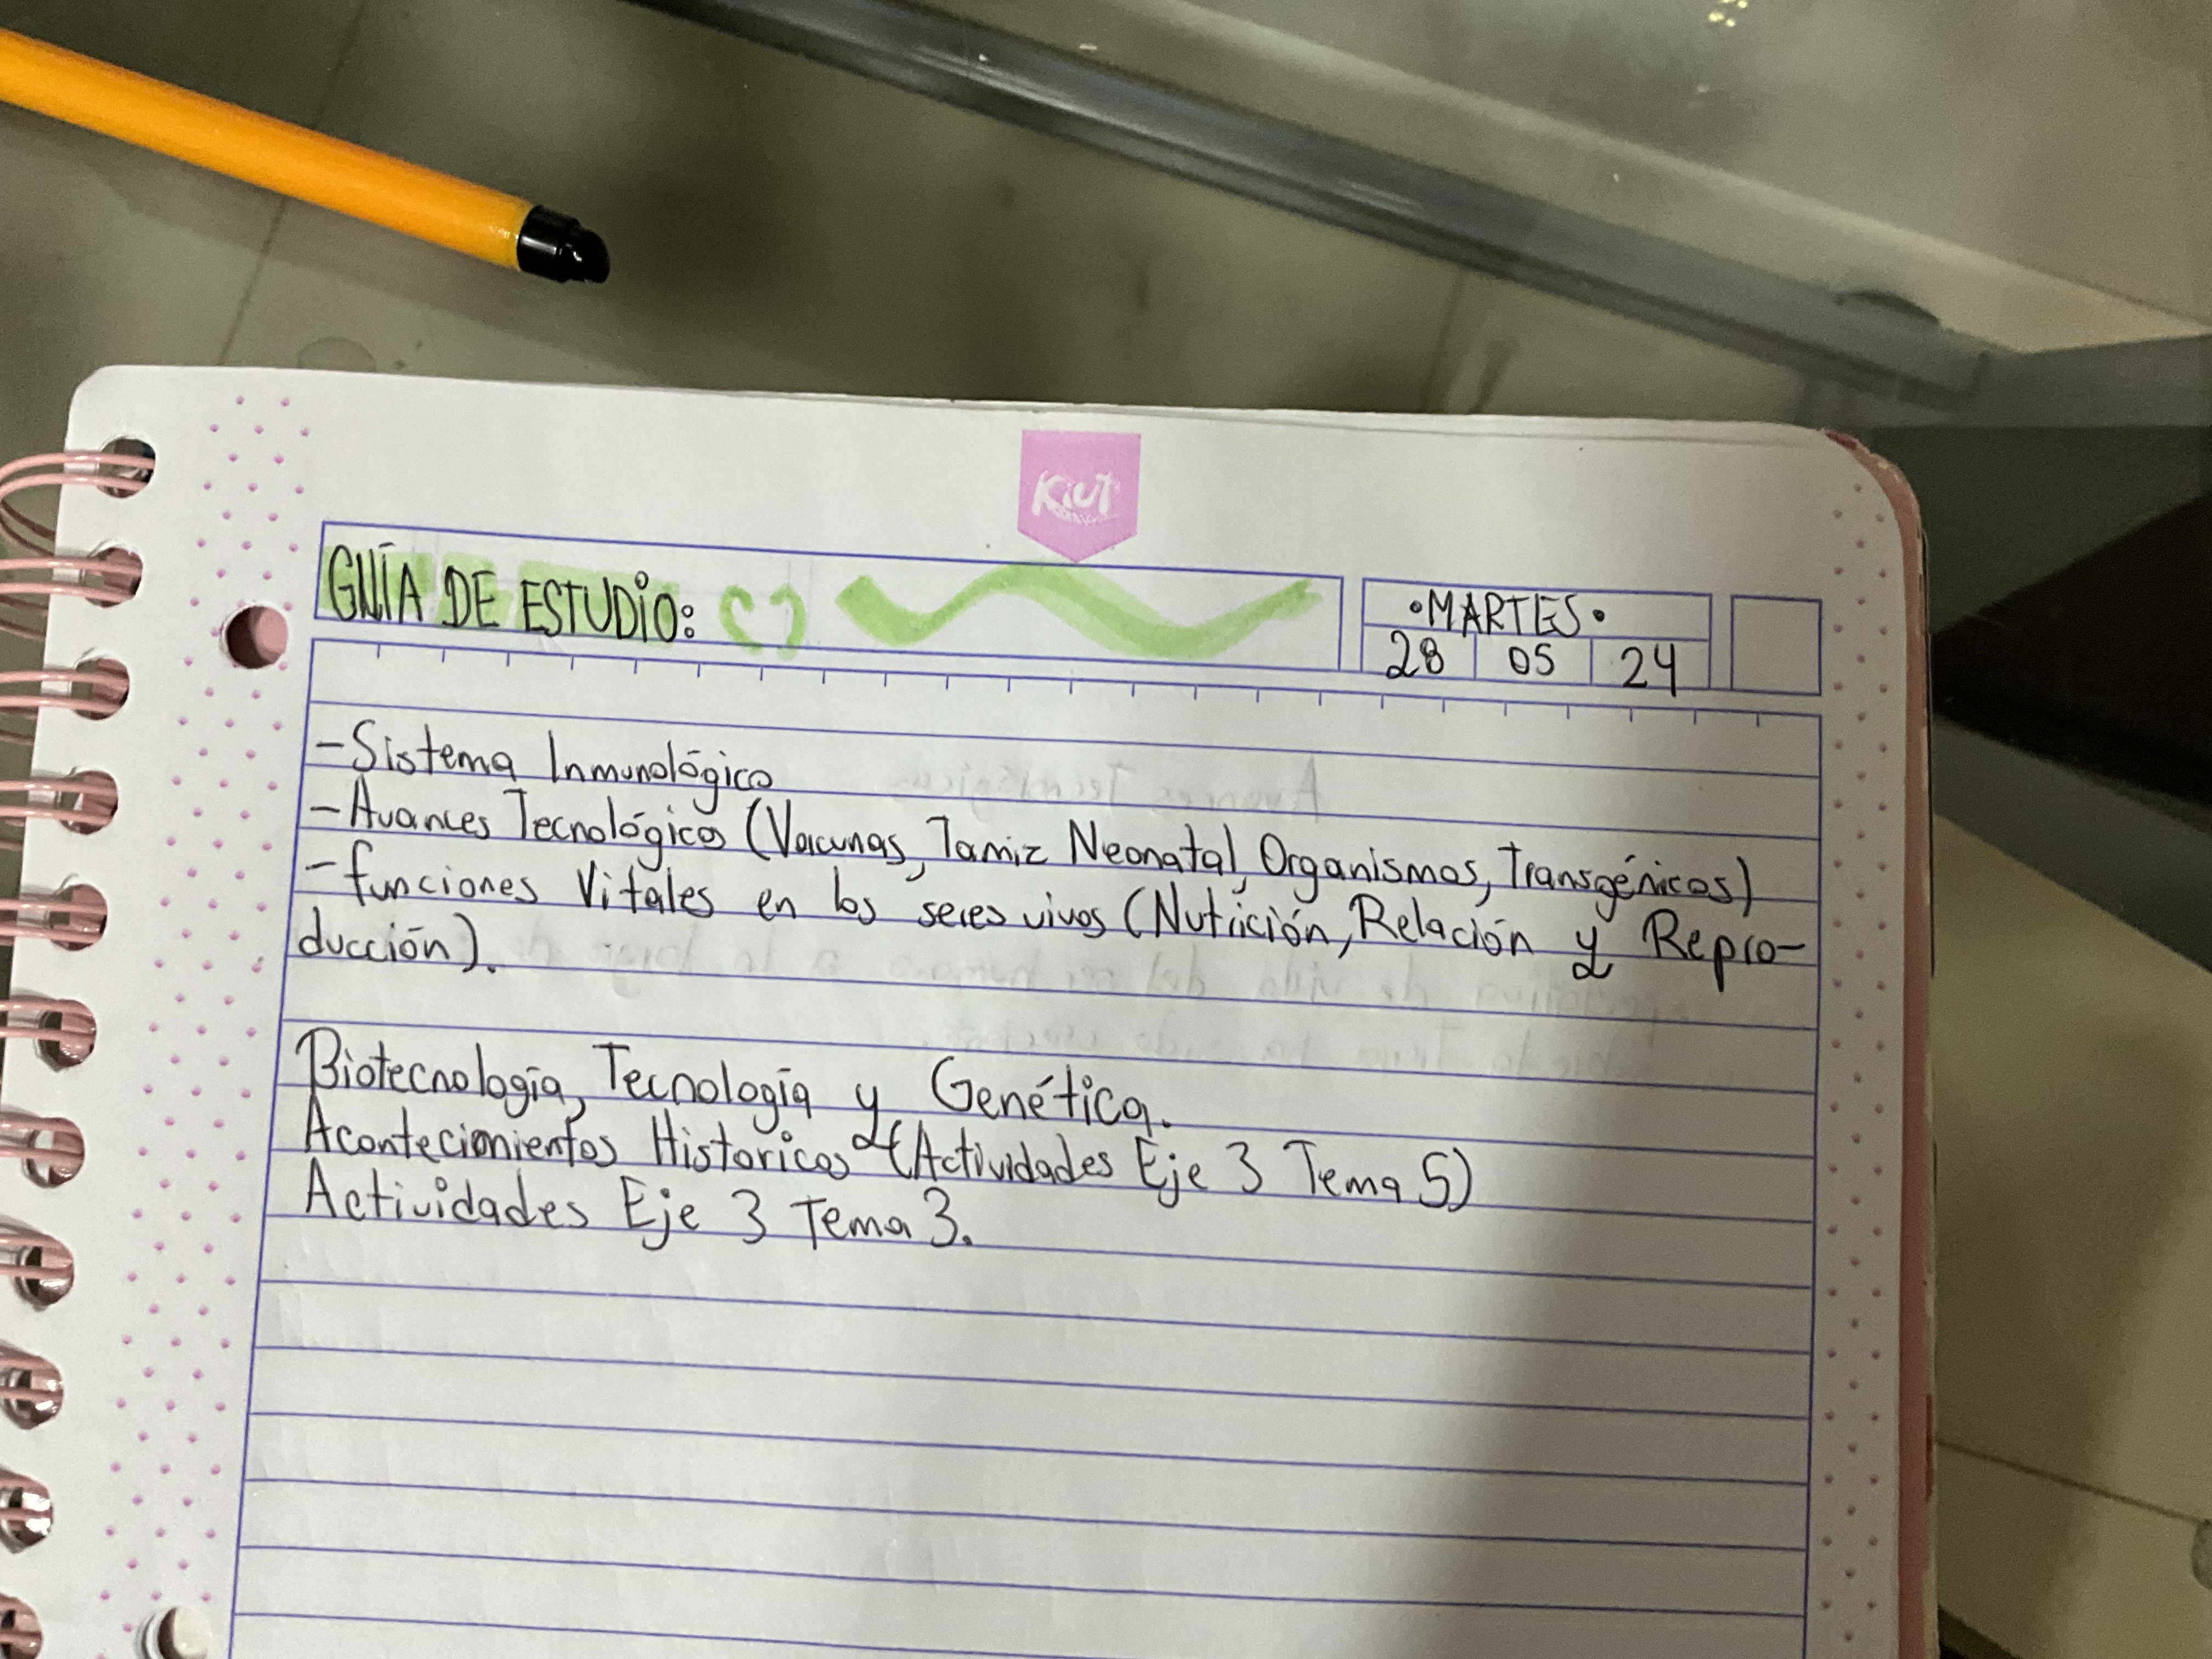 Kiut
GUÍA DE ESTUDIO:
•MARTES•
28 05 24
-Sistema Inmunológico
-Avances Tecnológicos (Vacunas, Tamiz Neonatal, Organismos, Transgénicos)
-funciones Vitales en los seres vivos (Nutrición, Relación y Repro-
ducción).
Biotecnología, Tecnología y Genética.
Acontecimientos Historicos (Actividades Eje 3 Tema 5)
Actividades Eje 3 Tema 3.